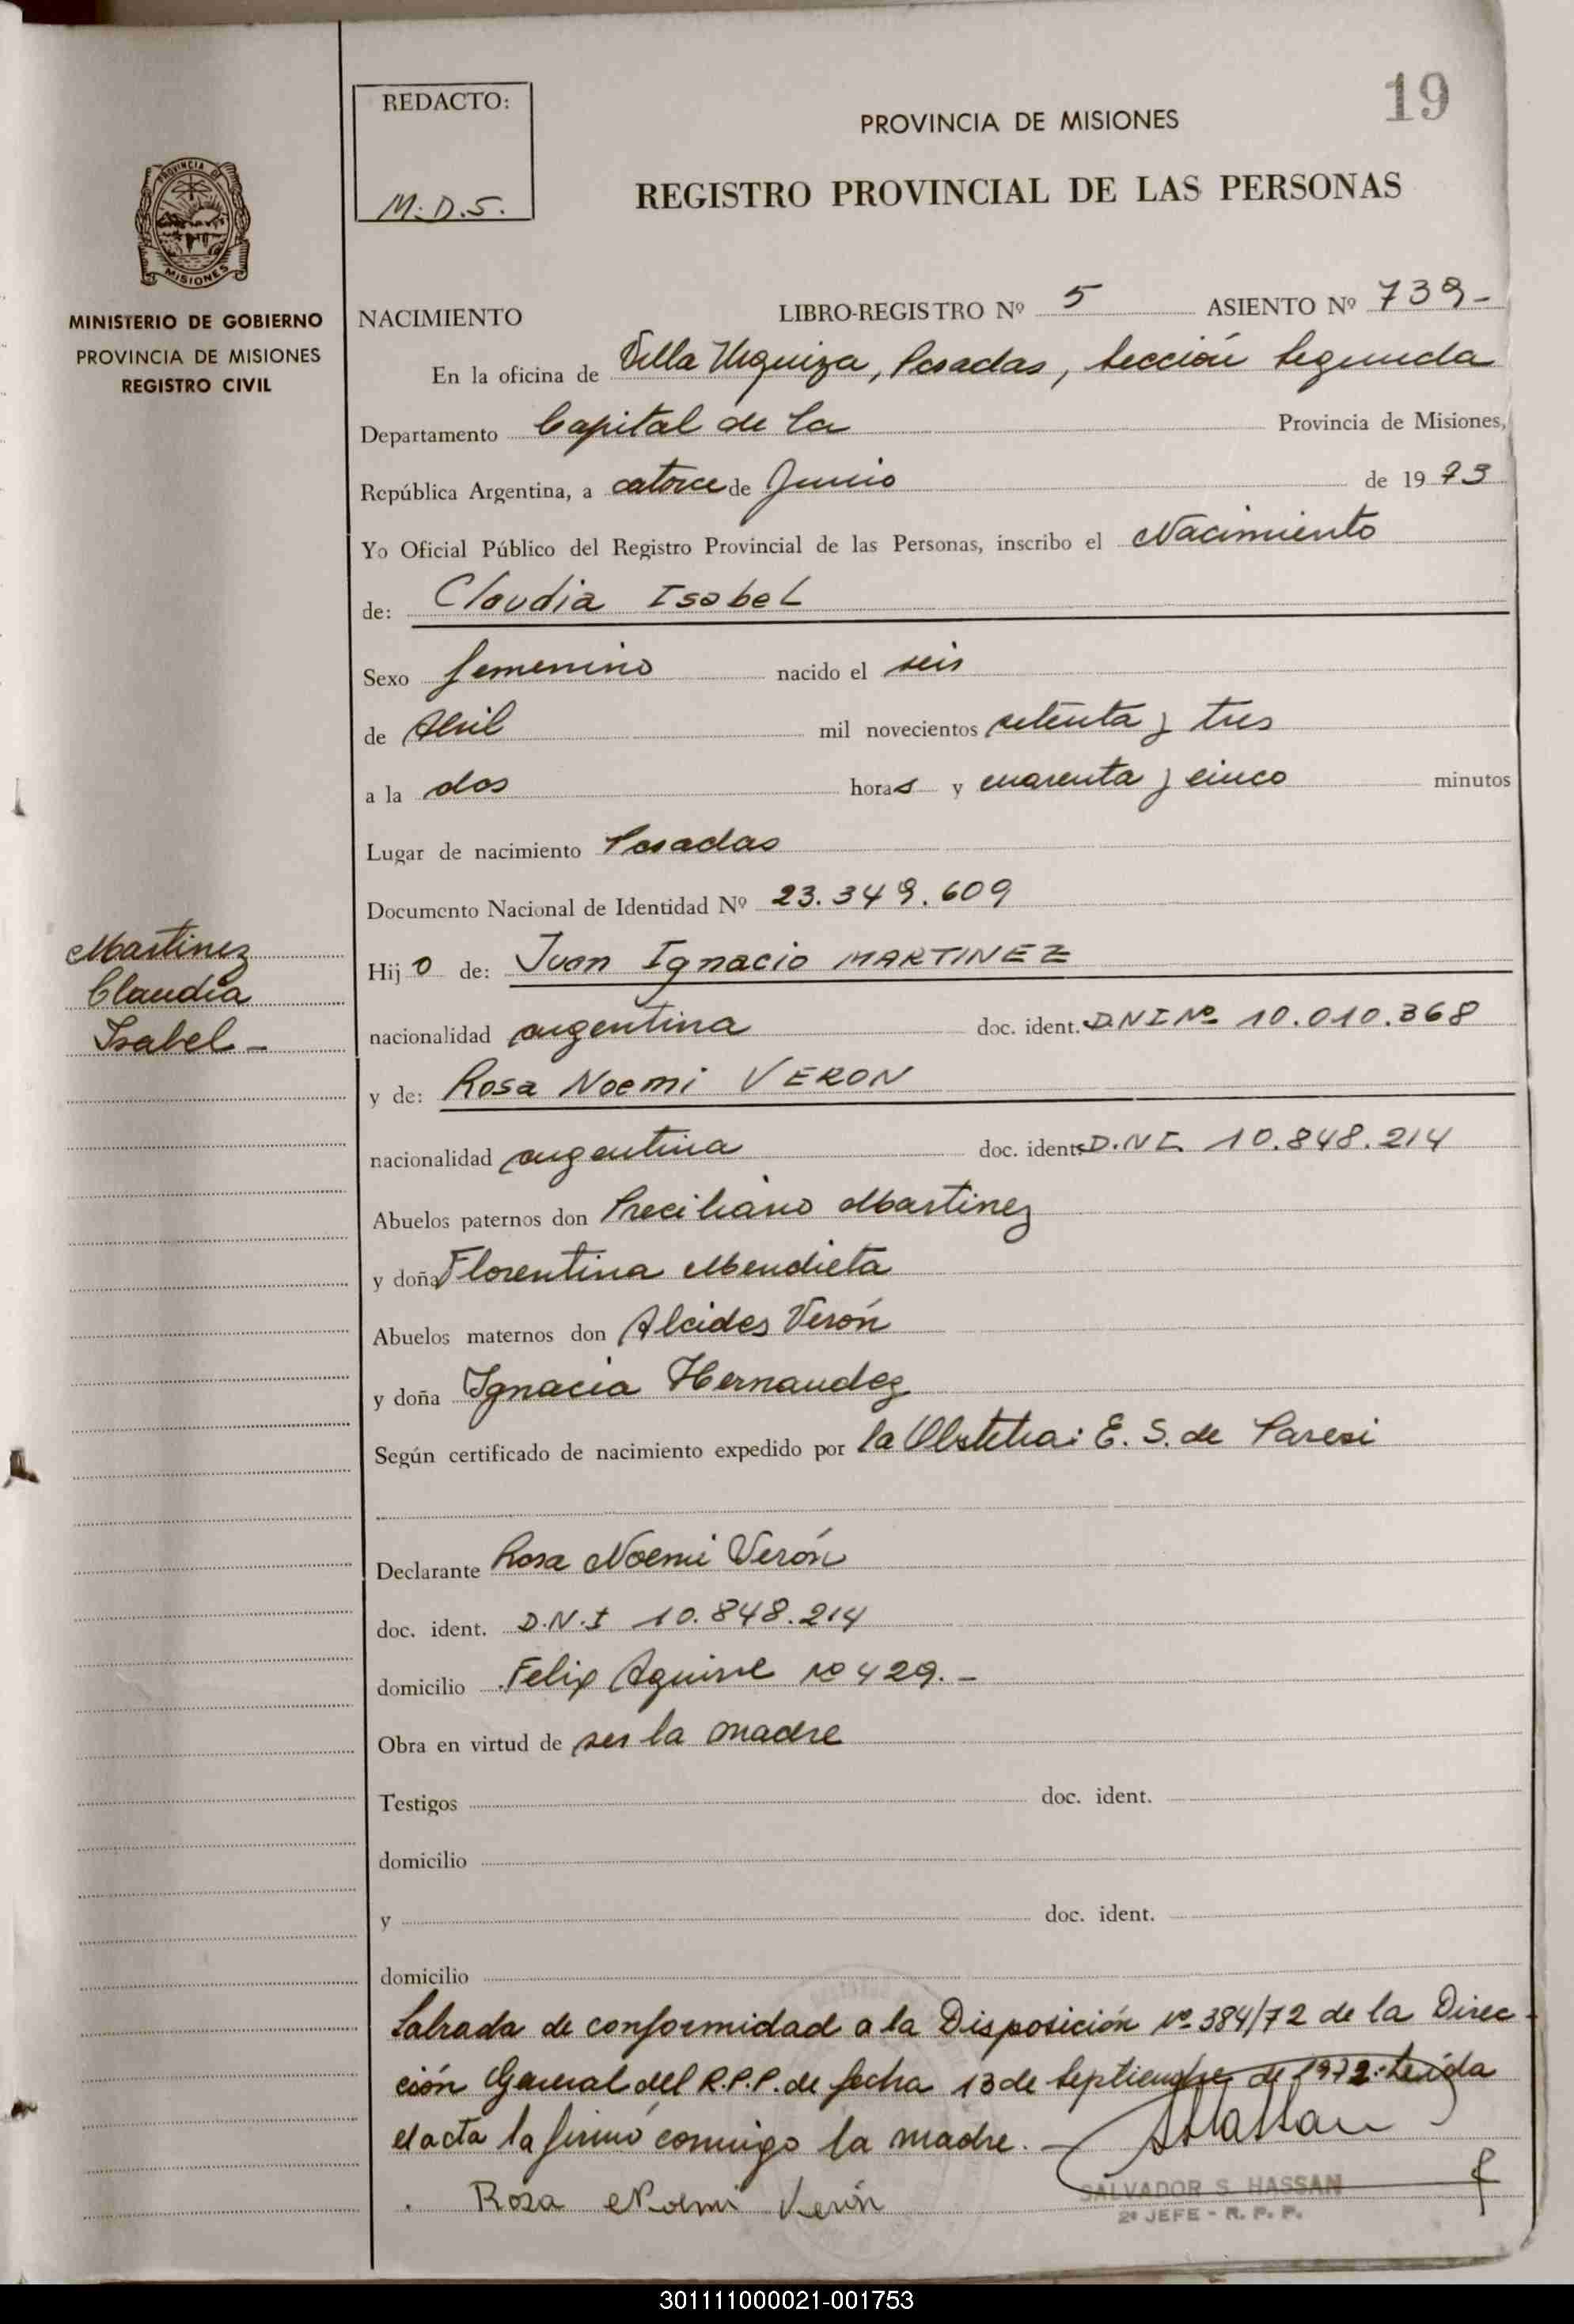 19
REDACTO:
M.D.S.
PROVINCIA DE MISIONES
REGISTRO PROVINCIAL DE LAS PERSONAS
PROVINCIA DE
MISIONES
MINISTERIO DE GOBIERNO
PROVINCIA DE MISIONES
REGISTRO CIVIL
NACIMIENTO LIBRO-REGISTRO Nº 5 ASIENTO Nº 739-
En la oficina de Villa Urquiza, Posadas, Sección Segunda
Departamento Capital de la Provincia de Misiones,
República Argentina, a catorce de Junio de 1973
Yo Oficial Público del Registro Provincial de las Personas, inscribo el Nacimiento
de: Claudia Isabel
Sexo femenino nacido el seis
de Abril mil novecientos setenta y tres
a la dos horas y cuarenta y cinco minutos
Lugar de nacimiento Posadas
Documento Nacional de Identidad Nº 23.349.609
Martinez
Claudia
Isabel -
Hijo de: Juan Ignacio MARTINEZ
nacionalidad argentina doc. ident. D.N.I Nº 10.010.368
y de: Rosa Noemi VERON
nacionalidad argentina doc. ident. D.N.I. 10.848.214
Abuelos paternos don Preciliano Martinez
y doña Florentina Mendieta
Abuelos maternos don Alcides Verón
y doña Ignacia Hernandez
Según certificado de nacimiento expedido por la Obstetra: E. S. de Paresi
Declarante Rosa Noemi Verón
doc. ident. D.N.I 10.848.214
domicilio Felix Aguirre Nº 429.-
Obra en virtud de ser la madre
Testigos doc. ident.
domicilio
y doc. ident.
domicilio
Labrada de conformidad a la Disposición Nº 384/72 de la Direc-
ción General del R.P.P. de fecha 13 de Septiembre de 1972. Leída
el acta la firmó conmigo la madre. -
Rosa Noemi Verón
SALVADOR S. HASSAN
2º JEFE - R. P. P.
301111000021-001753